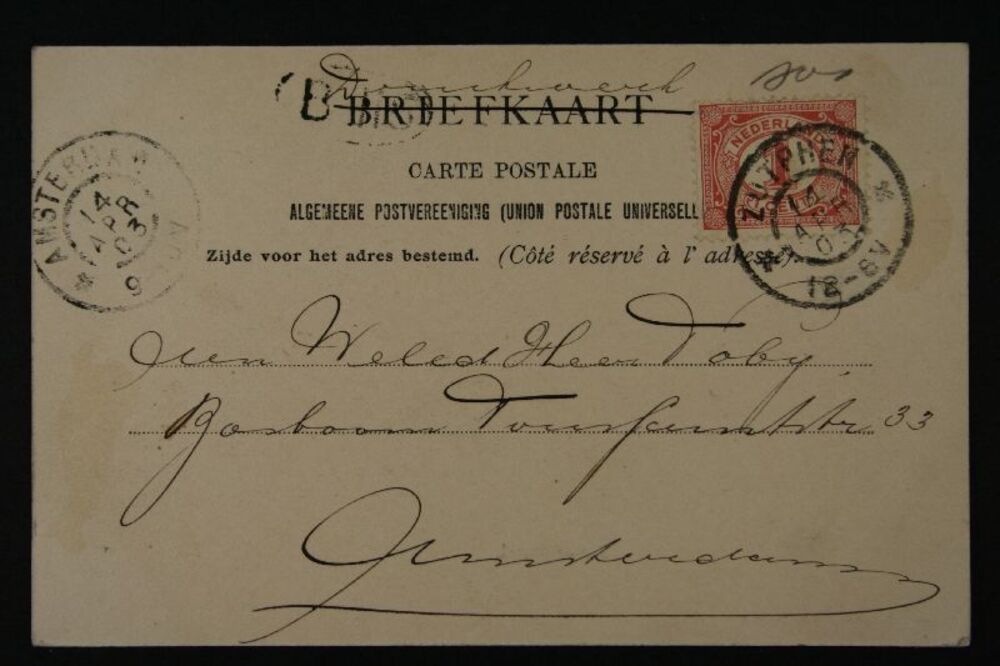 Drukwerk
BRIEFKAART
CARTE POSTALE
ALGEMEENE POSTVEREENIGING (UNION POSTALE UNIVERSELL
Zijde voor het adres bestemd. (Côté réservé à l' adresse).
NEDERLAND
1
ZUTPHEN
14 APR 03
12-8V
AMSTERDAM
14
APR
03
9
Den Weled Heer Toby,
Bosboom Toussaintstr 33
Amsterdam